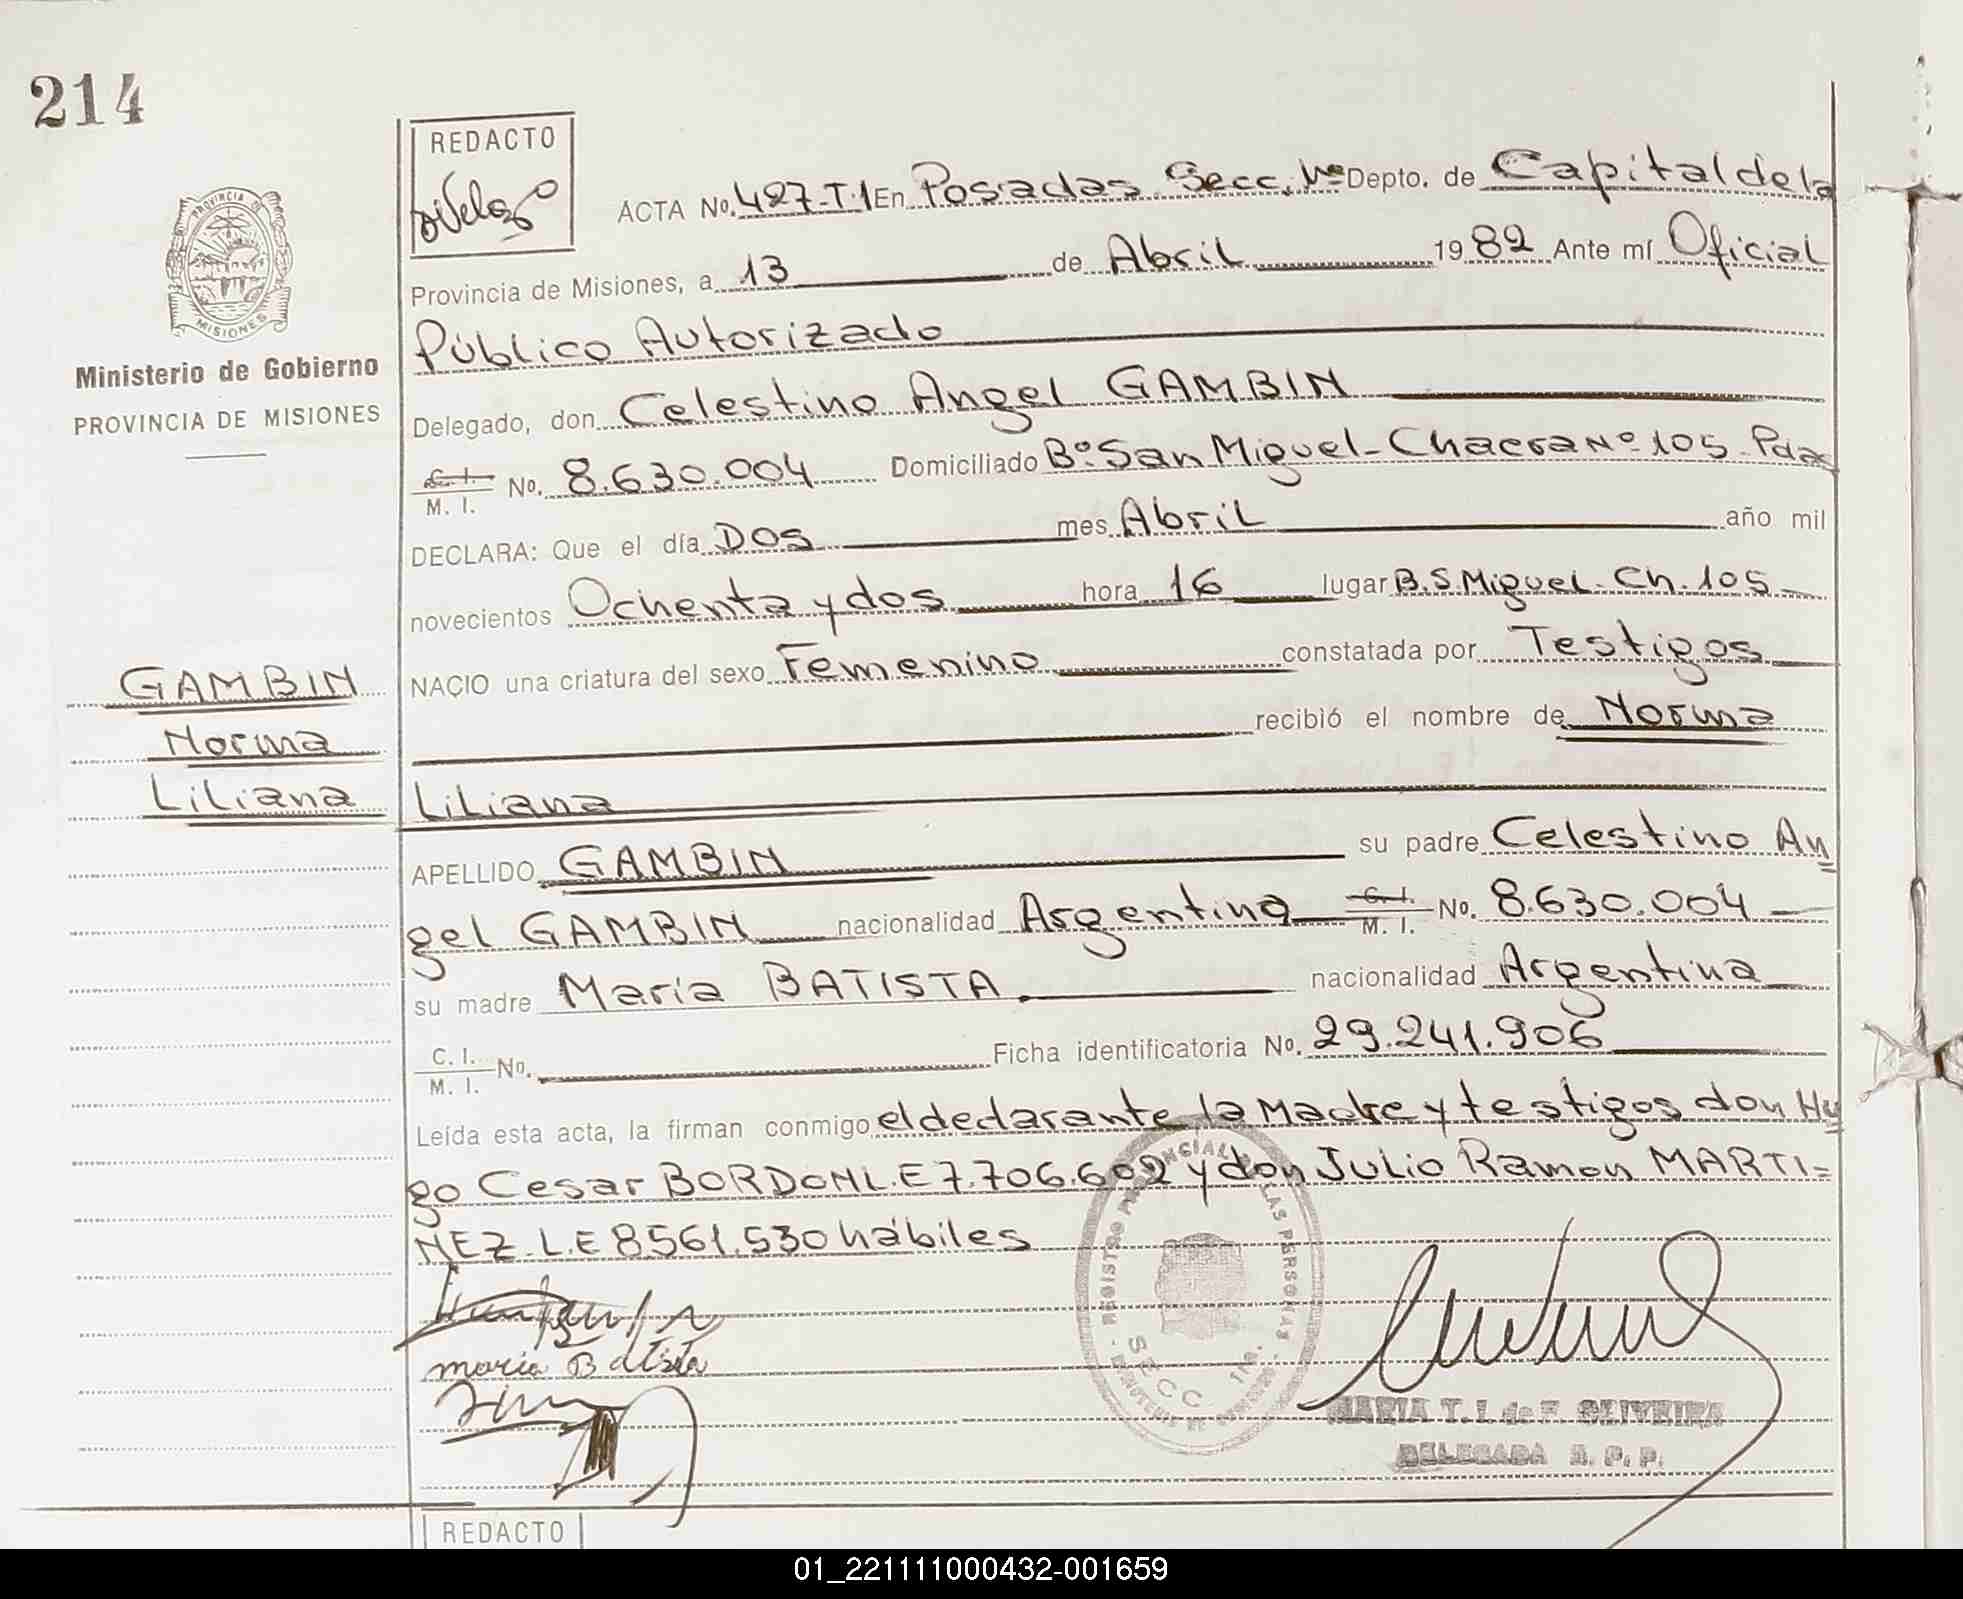 214
REDACTO
PROVINCIA DE
MISIONES
Ministerio de Gobierno
PROVINCIA DE MISIONES
GAMBIN
Norma
Liliana
ACTA No. 427-T.1 En Posadas Secc. 1ra Depto. de Capital de la
Provincia de Misiones, a 13 de Abril 1982 Ante mí Oficial
Público Autorizado
Delegado, don Celestino Angel GAMBIN
C. I. / M. I. No. 8.630.004 Domiciliado Bº San Miguel - Chacra Nº 105 - Pdas
DECLARA: Que el día Dos mes Abril año mil
novecientos Ochenta y dos hora 16 lugar B. S. Miguel - Ch. 105
NACIO una criatura del sexo Femenino constatada por Testigos
recibió el nombre de Norma
Liliana
APELLIDO GAMBIN su padre Celestino An
gel GAMBIN nacionalidad Argentina C. I. / M. I. No. 8.630.004
su madre María BATISTA nacionalidad Argentina
C. I. / M. I. No. Ficha identificatoria No. 29.241.906
Leída esta acta, la firman conmigo el declarante la Madre y testigos don Hu
go Cesar BORDON L.E 7.706.602 y don Julio Ramon MARTI=
NEZ L.E 8561.530 hábiles
maria Batista
REGISTRO PROVINCIAL DE LAS PERSONAS
MINISTERIO DE GOBIERNO
SECC 1RA.
MARIA T. I. de F. OLIVEIRA
DELEGADA R. P. P.
REDACTO
01_221111000432-001659